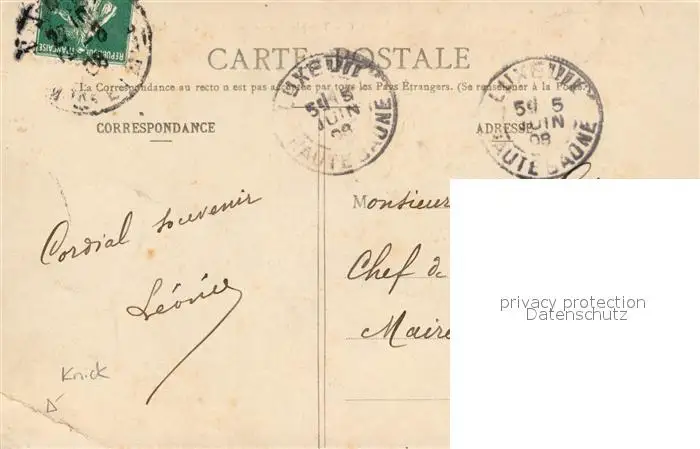 REPUBLIQUE FRANÇAISE
CARTE POSTALE
La Correspondance au recto n'est pas acceptée par tous les Pays Étrangers. (Se renseigner à la Poste.)
LUXEUIL
5 JUIN 08
HAUTE SAONE
LUXEUIL
5 JUIN 08
HAUTE SAONE
CORRESPONDANCE
ADRESSE
Monsieur
Cordial souvenir
Chef de
Léonie
Maire
Knick
privacy protection
Datenschutz